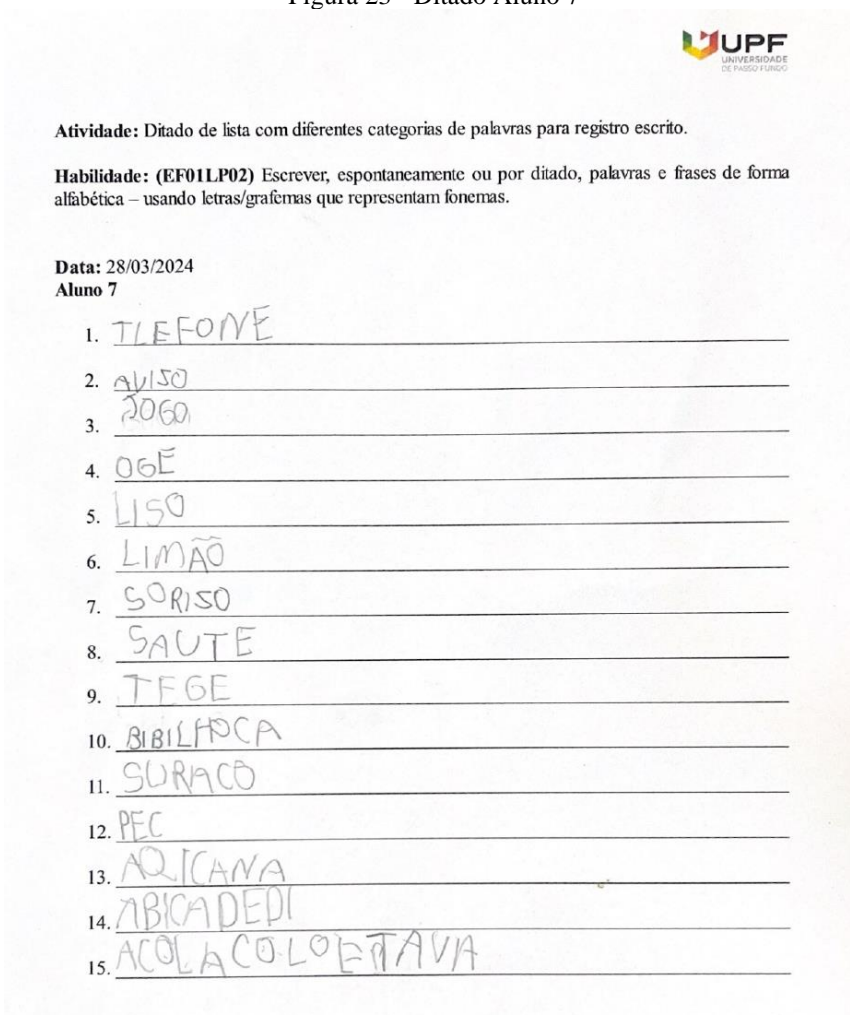 Figura 23 - Ditado Aluno 7
UPF
UNIVERSIDADE
DE PASSO FUNDO
Atividade: Ditado de lista com diferentes categorias de palavras para registro escrito.
Habilidade: (EF01LP02) Escrever, espontaneamente ou por ditado, palavras e frases de forma
alfabética – usando letras/grafemas que representam fonemas.
Data: 28/03/2024
Aluno 7
1. TLEFONE
2. AVISO
3. JOGO
4. OGE
5. LISO
6. LIMÃO
7. SORISO
8. SAUTE
9. TEGE
10. BIBILHOCA
11. SURACO
12. PEC
13. AQICANA
14. ABICADEPI
15. ACOLACOLOETAVA